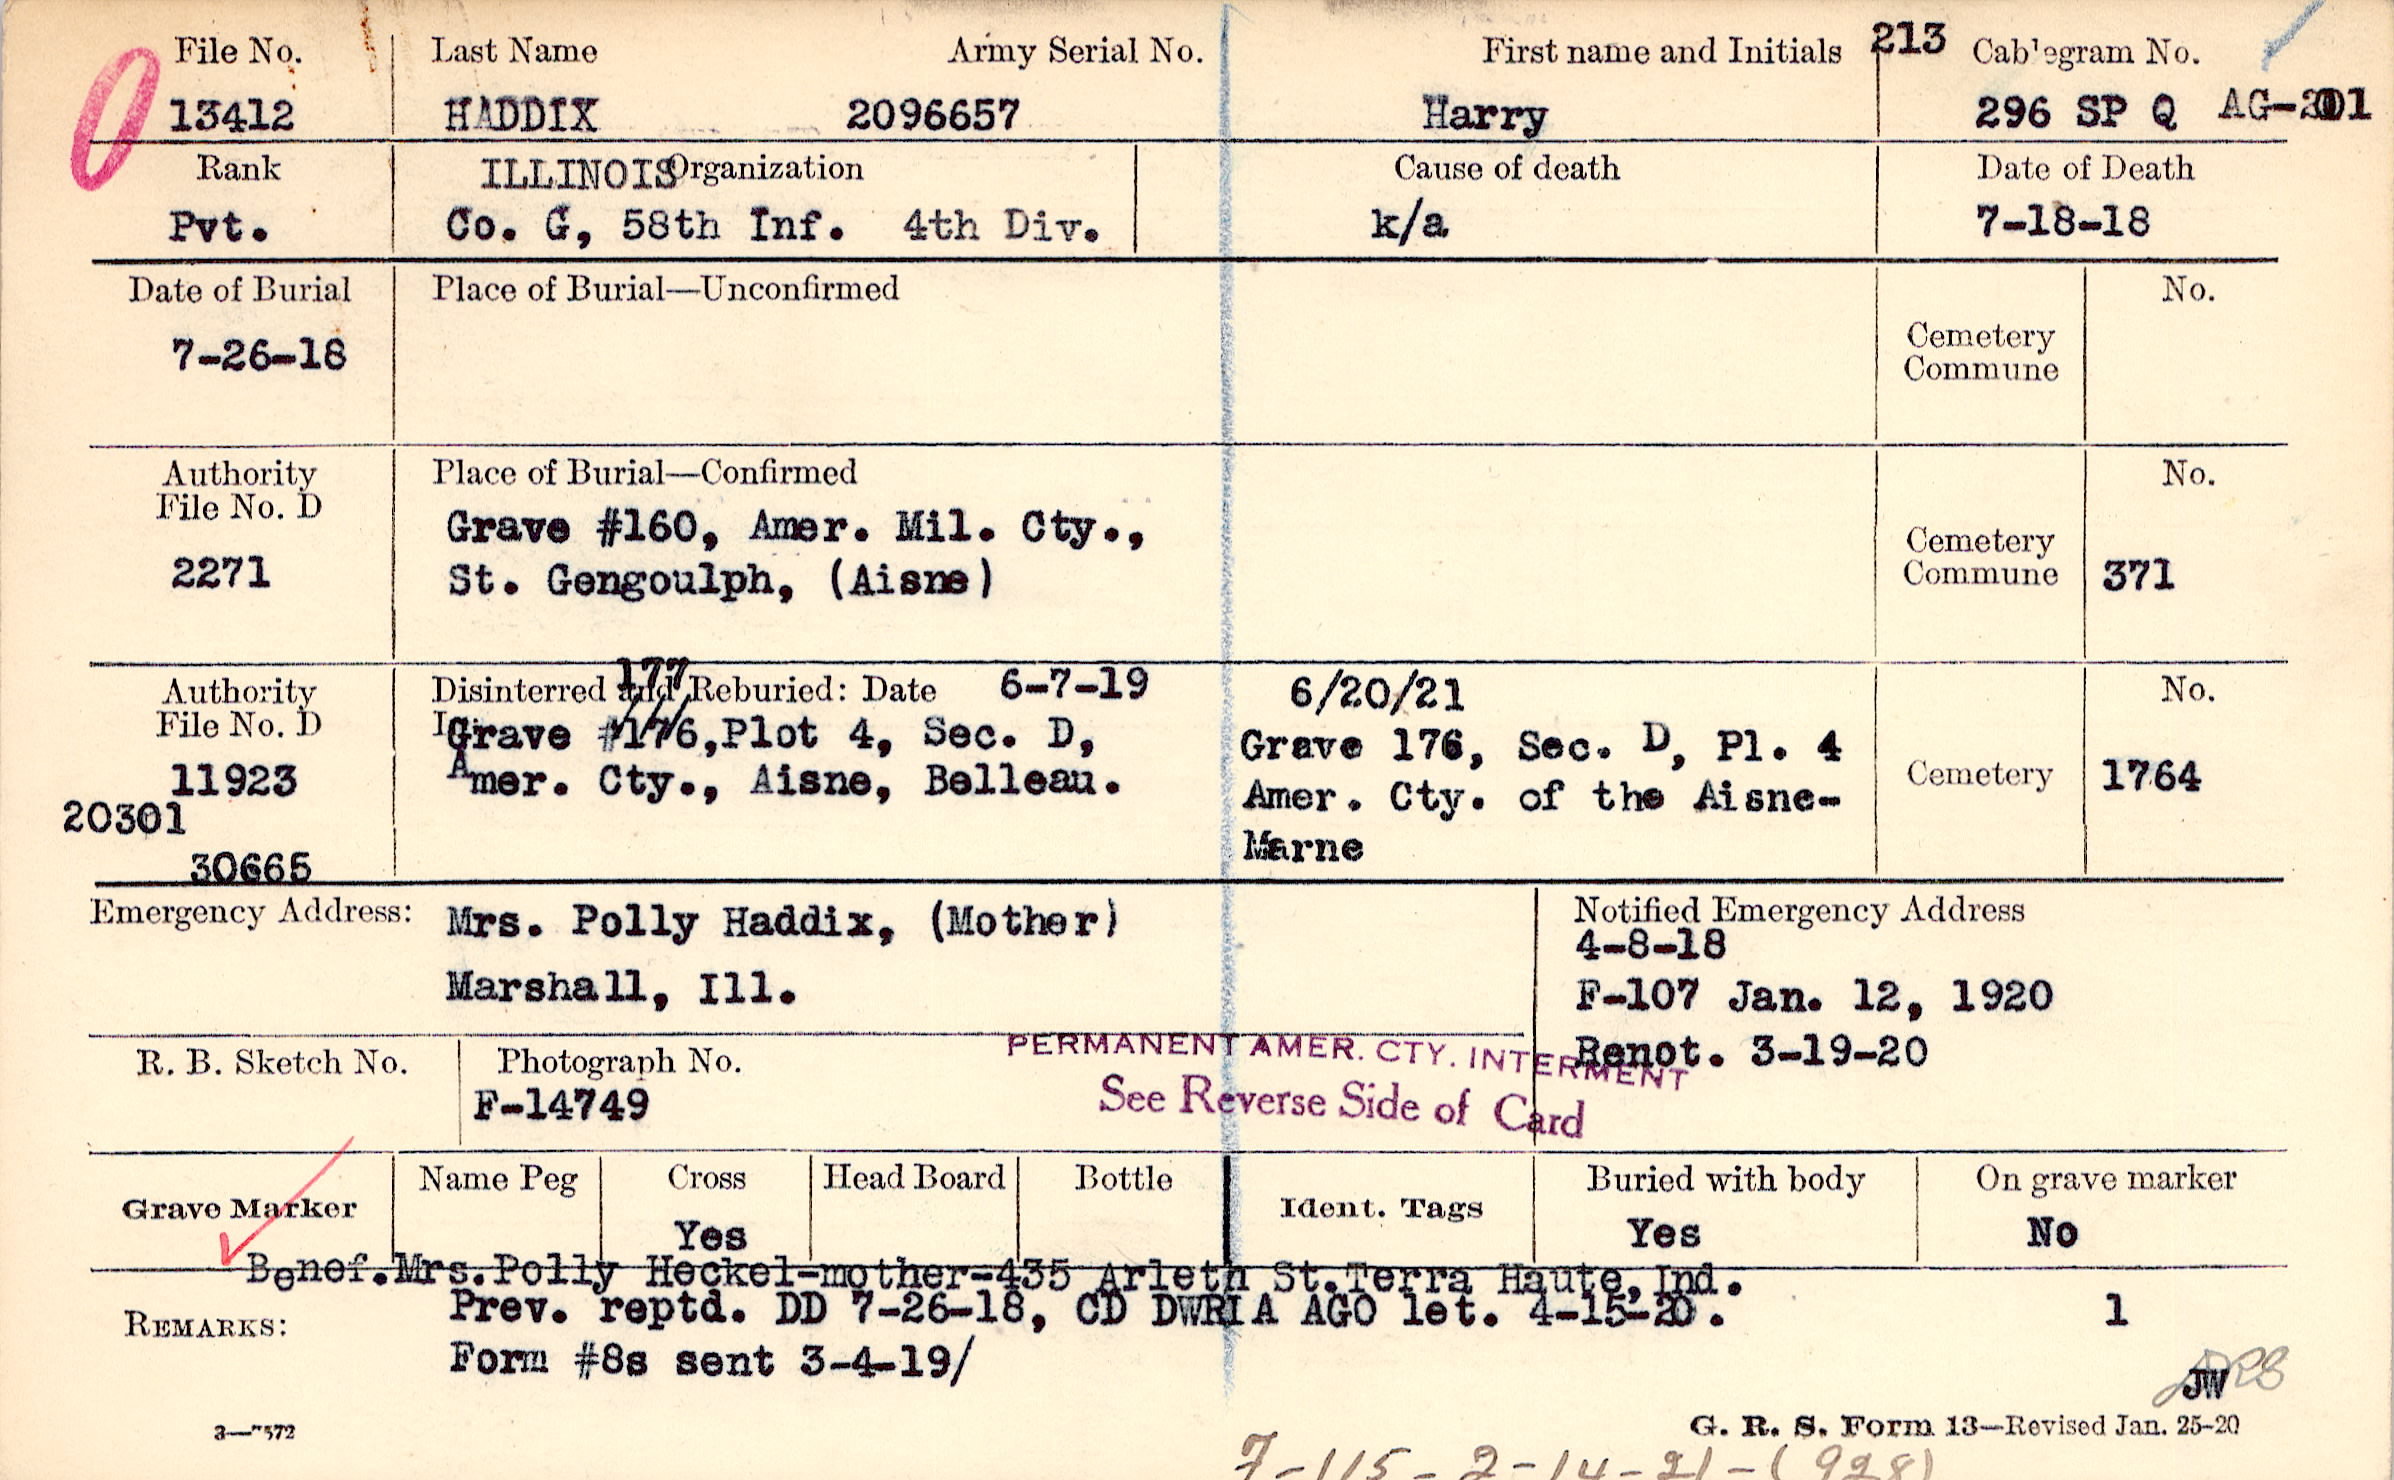 File No. Last Name Army Serial No. First name and Initials 213 Cablegram No.
13412 HADDIX 2096657 Harry 296 SP Q AG-201
Rank ILLINOIS Organization Cause of death Date of Death
Pvt. Co. G, 58th Inf. 4th Div. k/a 7-18-18
Date of Burial Place of Burial—Unconfirmed No.
7-26-18
Cemetery
Commune
Authority Place of Burial—Confirmed No.
File No. D
Grave #160, Amer. Mil. Cty.,
2271 St. Gengoulph, (Aisne)
Cemetery
Commune 371
177
Authority Disinterred and Reburied: Date 6-7-19 6/20/21 No.
File No. D Grave #176, Plot 4, Sec. D, Grave 176, Sec. D, Pl. 4
11923 Amer. Cty., Aisne, Belleau. Amer. Cty. of the Aisne- Cemetery 1764
20301 Marne
30665
Emergency Address: Mrs. Polly Haddix, (Mother) Notified Emergency Address
4-8-18
Marshall, Ill. F-107 Jan. 12, 1920
PERMANENT AMER. CTY. INTERMENT
Renot. 3-19-20
R. B. Sketch No. Photograph No.
F-14749 See Reverse Side of Card
Grave Marker Name Peg Cross Head Board Bottle Ident. Tags Buried with body On grave marker
Yes Yes No
Benef. Mrs. Polly Heckel-mother-435 Arleth St. Terra Haute, Ind.
REMARKS: Prev. reptd. DD 7-26-18, CD DWRIA AGO let. 4-15-20. 1
Form #8s sent 3-4-19/
JW
G. R. S. Form 13—Revised Jan. 25-20
7-115-2-14-21-(928)